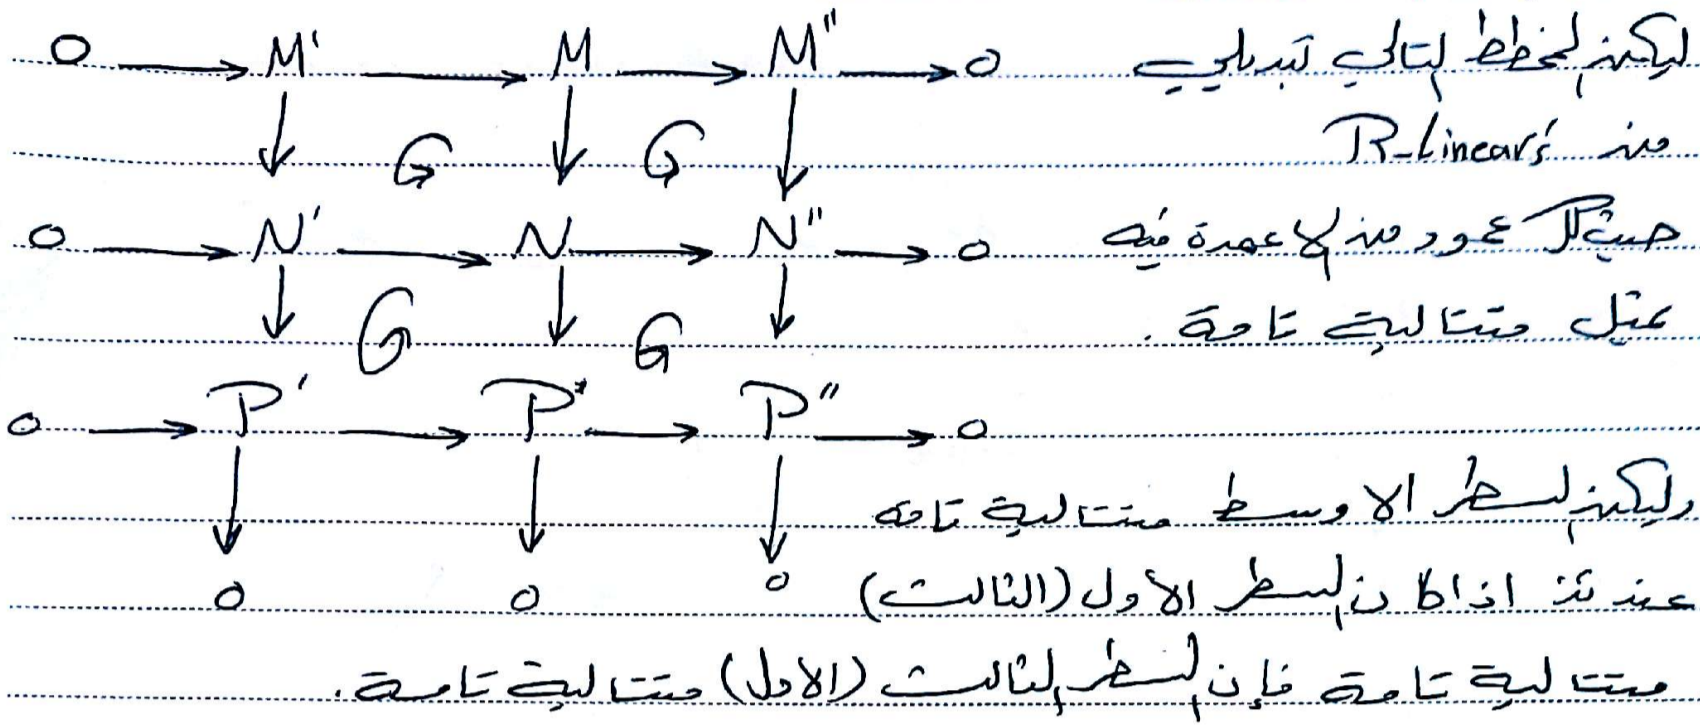 0 → M' → M → M'' → 0 ليكن المخطط التالي تبديلي
↓ G ↓ G ↓ من R-Linear's
0 → N' → N → N'' → 0 حيث كل عمود من الاعمدة فيه
↓ G ↓ G ↓ يمثل متتالية تامة .
0 → P' → P → P'' → 0
↓ ↓ ↓ وليكن السطر الاوسط متتالية تامه
0 0 0 عندئذ اذا كان السطر الأول (الثالث)
متتالية تامة فإن السطر الثالث (الاول) متتالية تامة .